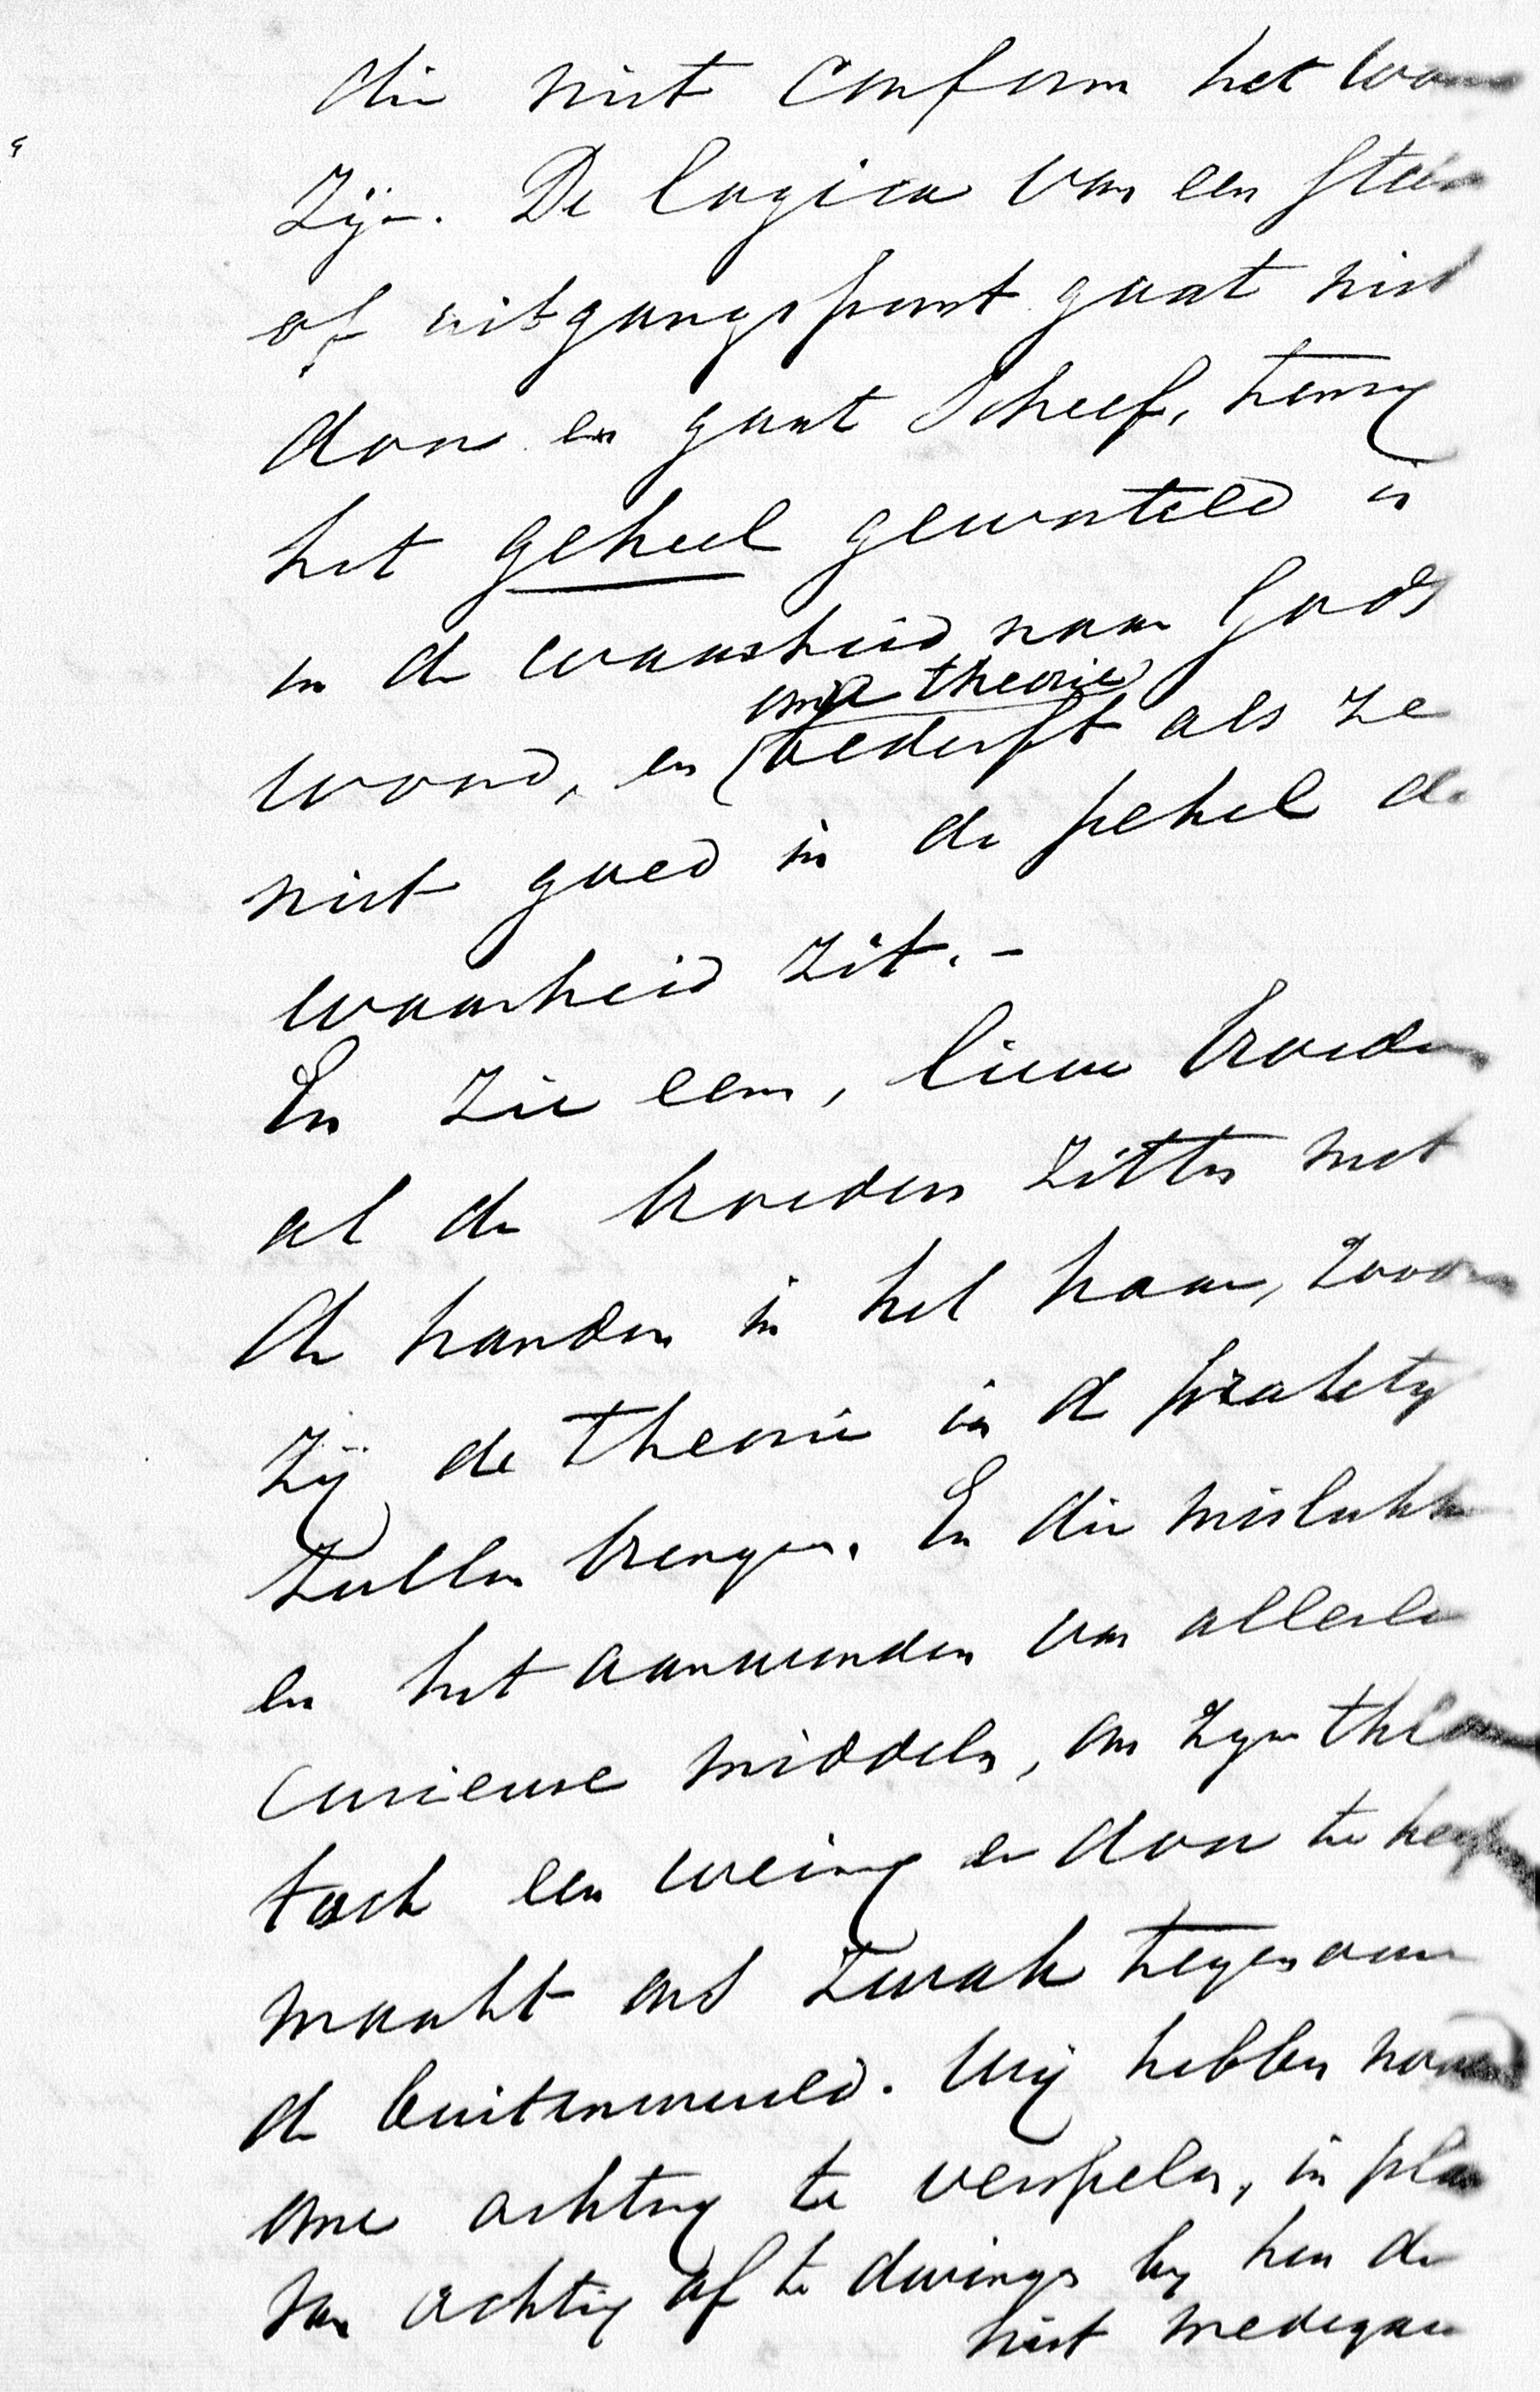 die niet conform het woord
zijn. De logica van een stelsel
of uitgangspunt gaat niet
door en gaat scheef, tenzij
het geheel geworteld is
in de waarheid naar Gods
onze theorie
woord, en bederft als ze
niet goed in de pekel der
waarheid zit. -
En zie eens, lieve broeders
al de broeders zitten met
de handen in het haar, zoodra
zij de theorie in de praktijk
zullen brengen. En die mislukking
en het aanwenden van allerlei
curieuse middelen, om zijn theorie
toch een weinig er door te helpen
maakt ons zwak tegenover
de buitenwereld. Wij hebben
onze achting te verspelen, in plaats
van achting af te dwingen bij hen die
niet medegaan